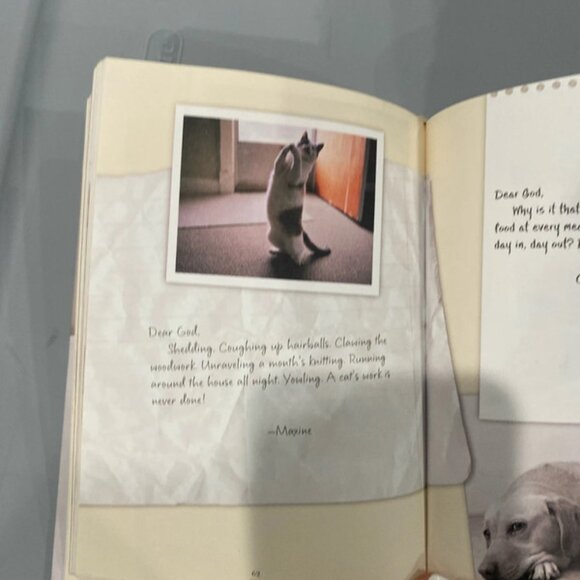 Dear God,
Shedding. Coughing up hairballs. Clawing the
woodwork. Unraveling a month's knitting. Running
around the house all night. Yowling. A cat's work is
never done!
—Maxine
62
Dear God,
Why is it that
food at every mea
day in, day out?